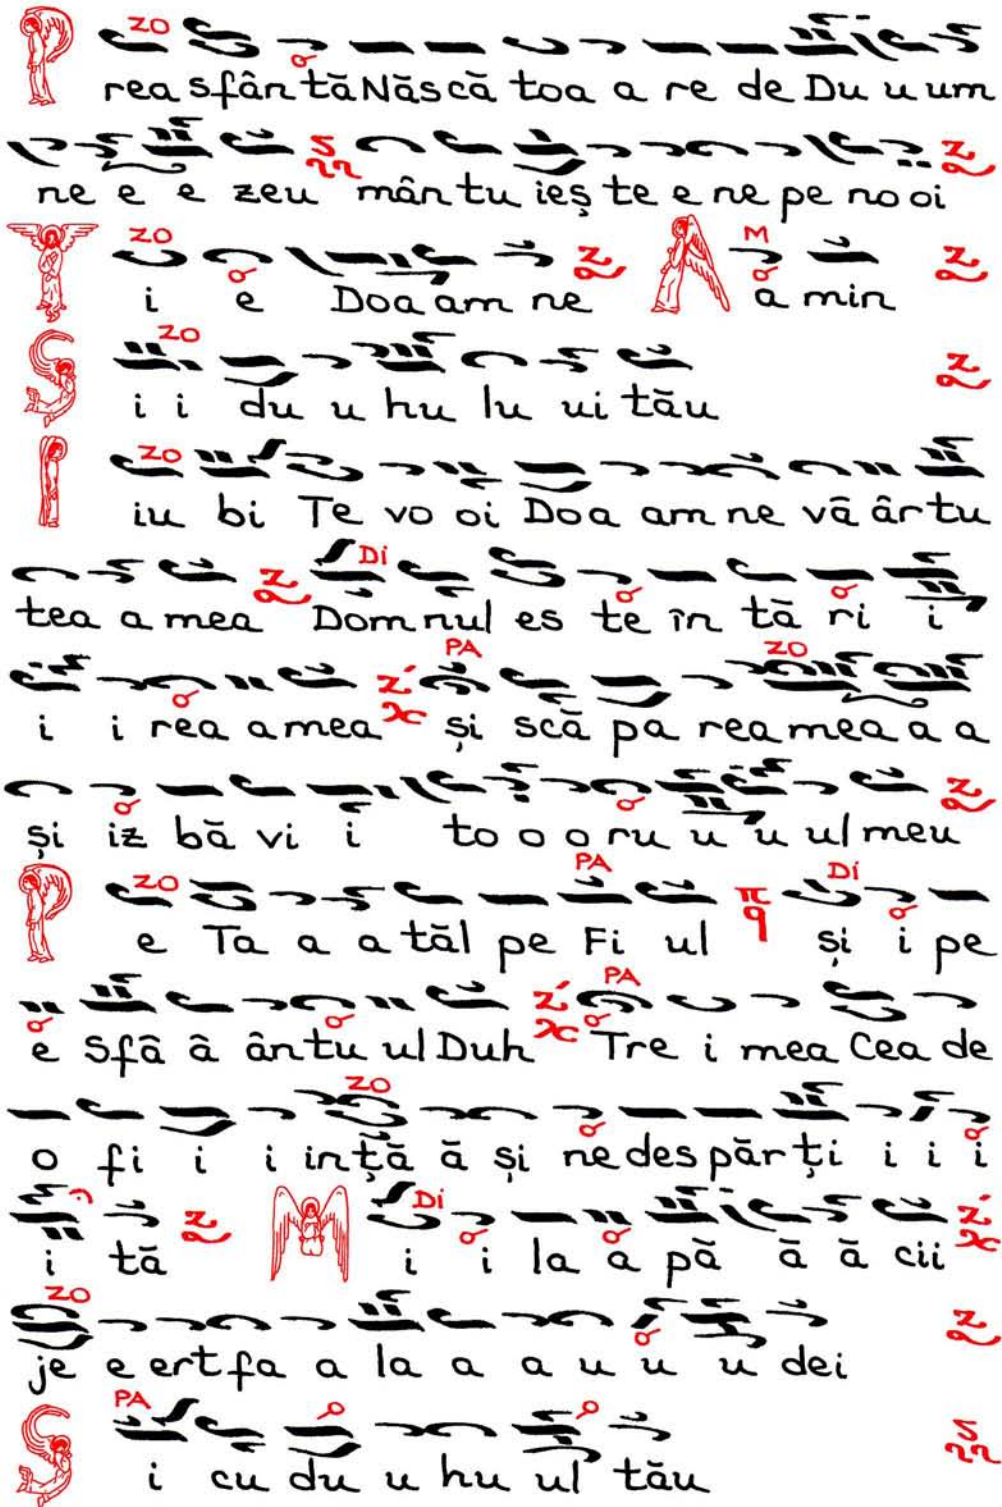 ZO
P rea sfân tă Năs că toa a re de Du u um
ne e e zeu mân tu ieș te e ne pe no oi
ZO M
T i e Doa am ne A a min
ZO
S i i du u hu lu ui tău
ZO
I iu bi Te vo oi Doa am ne vă âr tu
Di
tea a mea Dom nul es te în tă ri i
PA ZO
i i rea a mea și scă pa rea mea a a
și iz bă vi i to o o ru u u ul meu
ZO PA Di
P e Ta a a tăl pe Fi ul și i pe
PA
e Sfâ â ân tu ul Duh Tre i mea Cea de
ZO
o fi i i in ță ă și ne des păr ți i i i
Di
i tă M i i la a pă ă ă cii
ZO
je e ert fa a la a a u u u dei
PA
S i cu du u hu ul tău